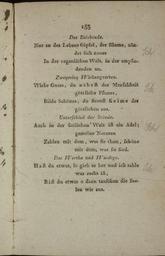 155
Das Belebende.
Nur an des Lebens Gipfel, der Blume, zün-
det sich neues
In der organischen Welt, in der empfin-
denden an.
Zweyerley Wirkungsarten.
Wirke Gutes, du nährst der Menschheit
göttliche Pflanze,
Bilde Schönes, du streust Keime der
göttlichen aus.
Unterschied der Stände.
Auch in der sittlichen Welt ist ein Adel;
gemeine Naturen
Zahlen mit dem, was sie thun, schöne
mit dem, was sie sind.
Das Werthe und Würdige.
Hast du etwas, so gieb es her und ich zahle
was recht ist,
Bist du etwas o dann tauschen die See-
len wir aus.